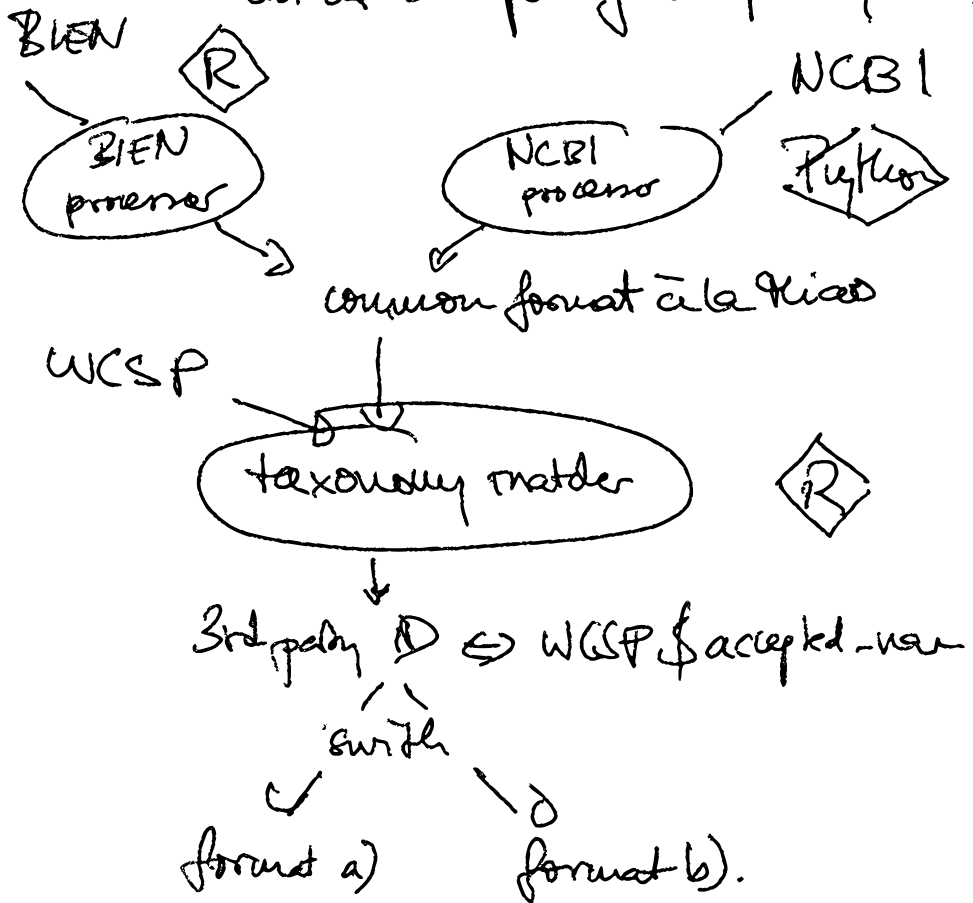 BIEN
R
NCBI
BIEN
processor
NCBI
processor
Python
common format à la
WCSP
taxonomy matcher
R
3rd party ID ⇔ WCSP $ accepted_
switch
format a)
format b).